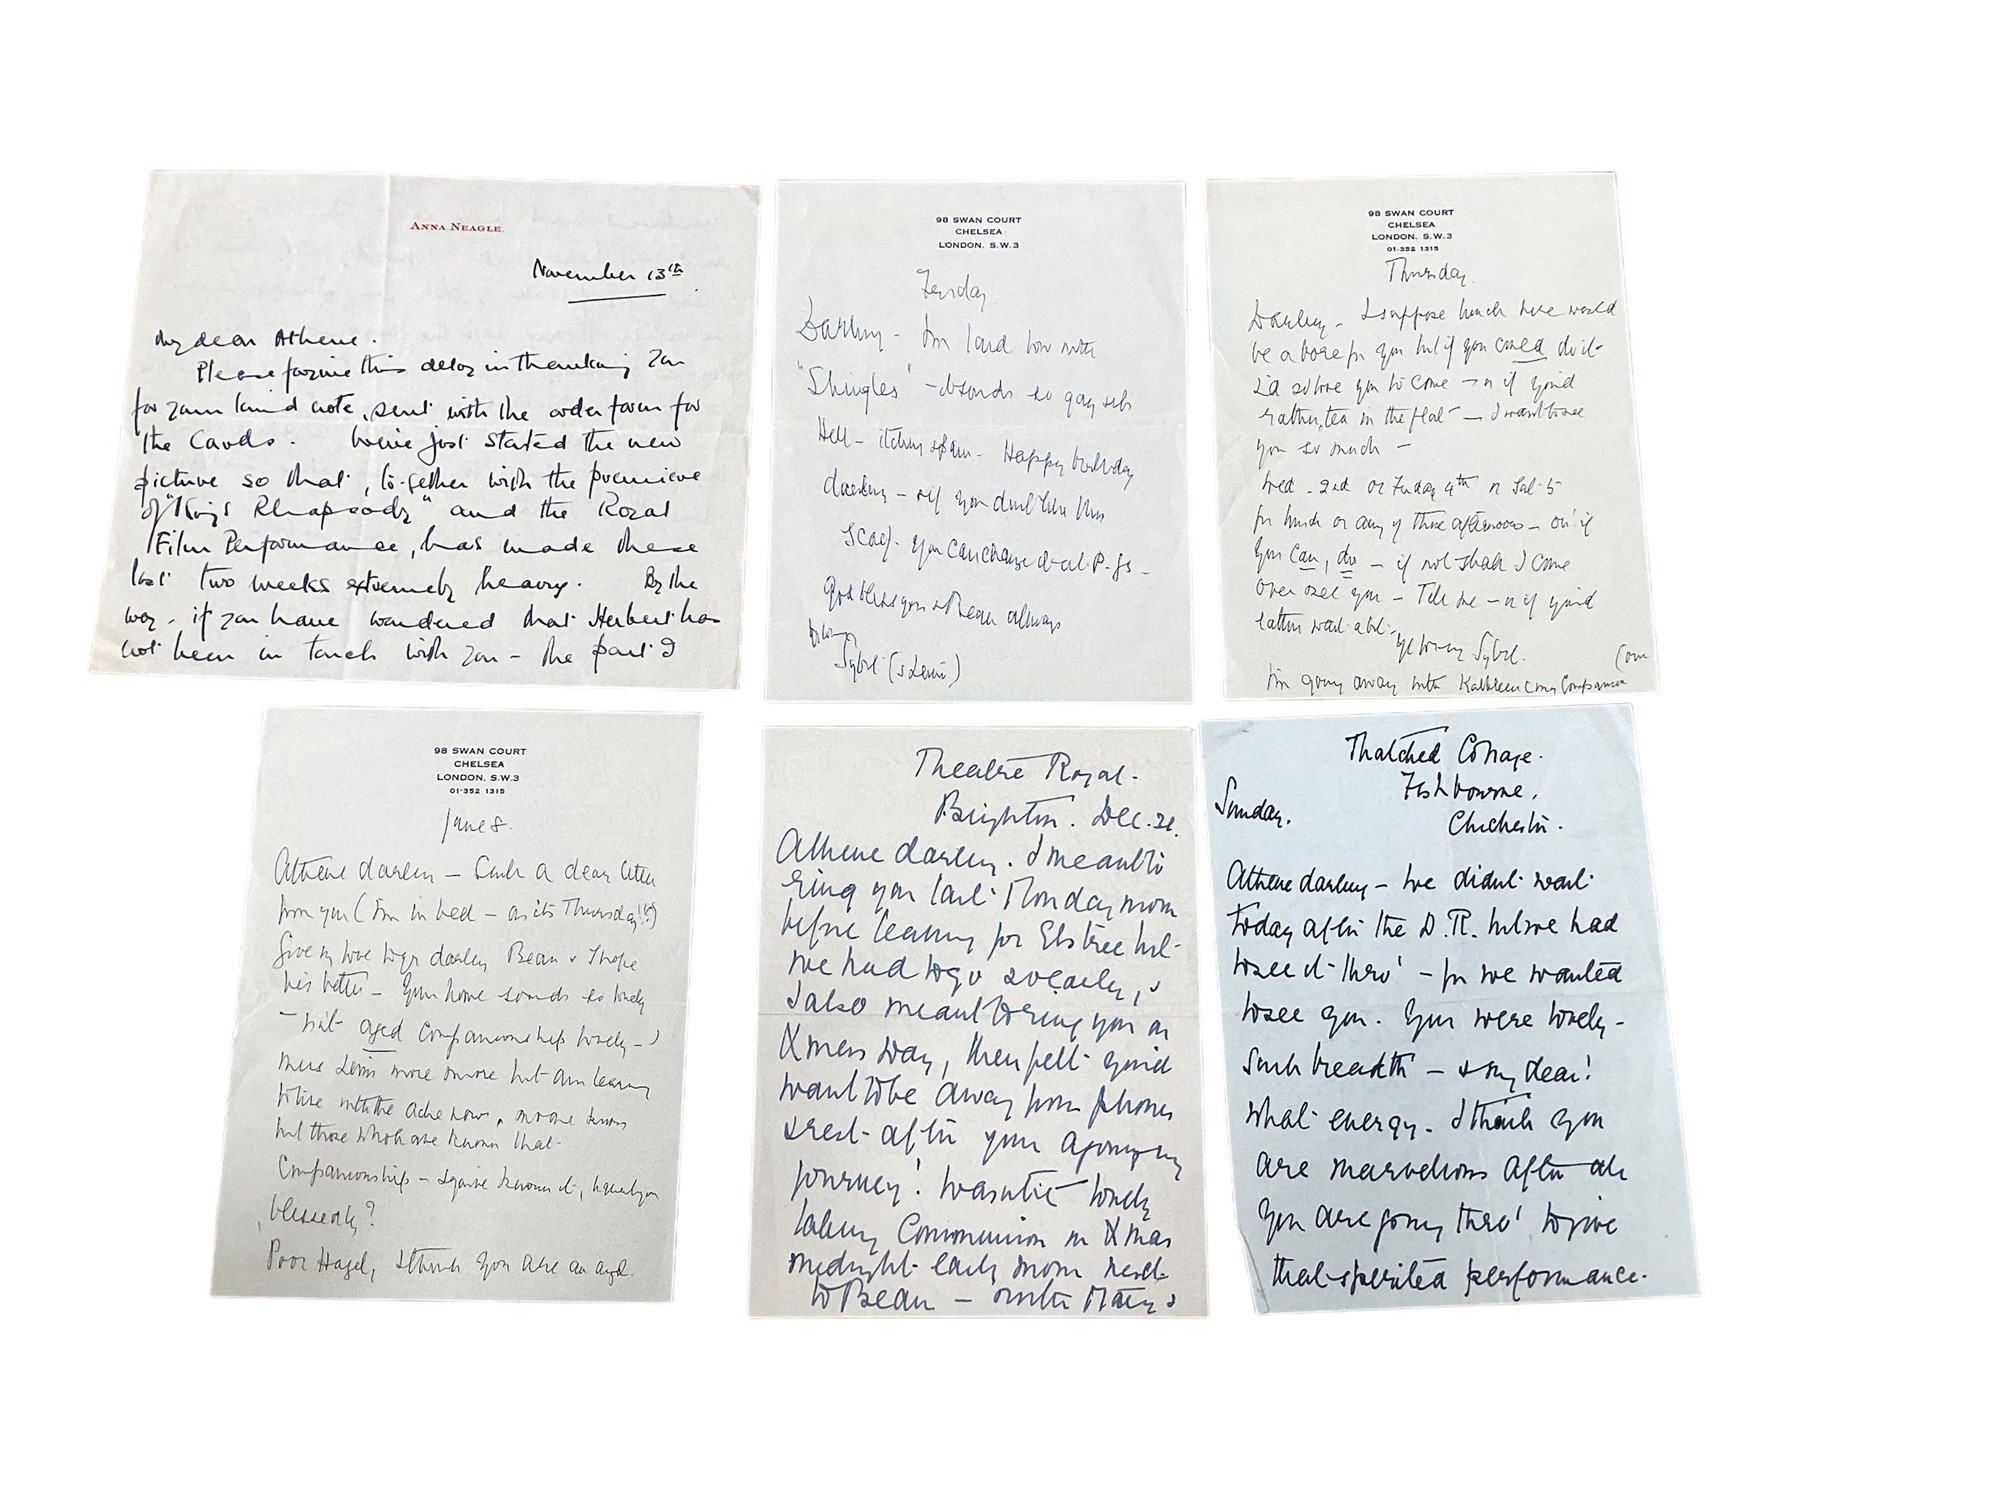 ANNA NEAGLE.
November 13th
My dear Athene.
Please forgive this delay in thanking you
for your kind note, sent with the order form for
the Cards. We've just started the new
picture so that, together with the premiere
of "King's Rhapsody" and the Royal
Film Performance, has made these
last two weeks extremely heavy. By the
way, if you have wondered that Herbert has
not been in touch with you - the part I
98 SWAN COURT
CHELSEA
LONDON. S.W.3
Darling - I'm laid low with
"Shingles" - sounds so gay
Hell - itching & pain - Happy birthday
darling - & if you don't like this
Scarf - you can change it at P.
God bless you & Bean always
Sybil (& Lewis)
98 SWAN COURT
CHELSEA
LONDON. S.W.3
01-352 1315
Thursday.
Darling - I suppose lunch here would
be a bore for you but if you could do it
I'd so love you to come - or if you'd
rather, tea in the flat - I want to see
you so much -
Wed - 2nd or Friday 4th or Sat. 5
for lunch or any of those afternoons - oh! if
you can, do - if not shall I come
over & see you - Tell me - or if you'd
rather wait a bit -
yr loving Sybil.
(over
I'm going away with Kathleen (my Companion
98 SWAN COURT
CHELSEA
LONDON. S.W.3
01-352 1315
June 8.
Athene darling - Such a dear letter
from you (I'm in bed - as its Thursday!!)
Give my love to yr darling Bean & I hope
he's better - Your home sounds so lovely
- aged companionship lovely - I
miss Lewis more & more but am learning
to live with the ache now, & no one knows
but those who have known that
Companionship - & you've known it, haven't you
blessedly?
Poor Hazel, I think you are an angel.
Theatre Royal.
Brighton. Dec.
Athene darling. I meant to
ring you last Monday morn
before leaving for Elstree but
we had to go so early, &
I also meant to ring you on
Xmas Day, then felt you'd
want to be away from phones
& rest after your agonizing
journey! Wasn't it lovely
taking Communion on Xmas
midnight early morn next
to Bean - with Mary &
Thatched Cottage.
Fishbourne,
Chichester.
Sunday.
Athene darling - we didn't wait
today after the D.R. but we had
to see it thro' - for we wanted
to see you. You were lovely -
Such breadth - & my dear!
what energy. I think you
are marvellous after all
you are going thro' to give
that spirited performance.